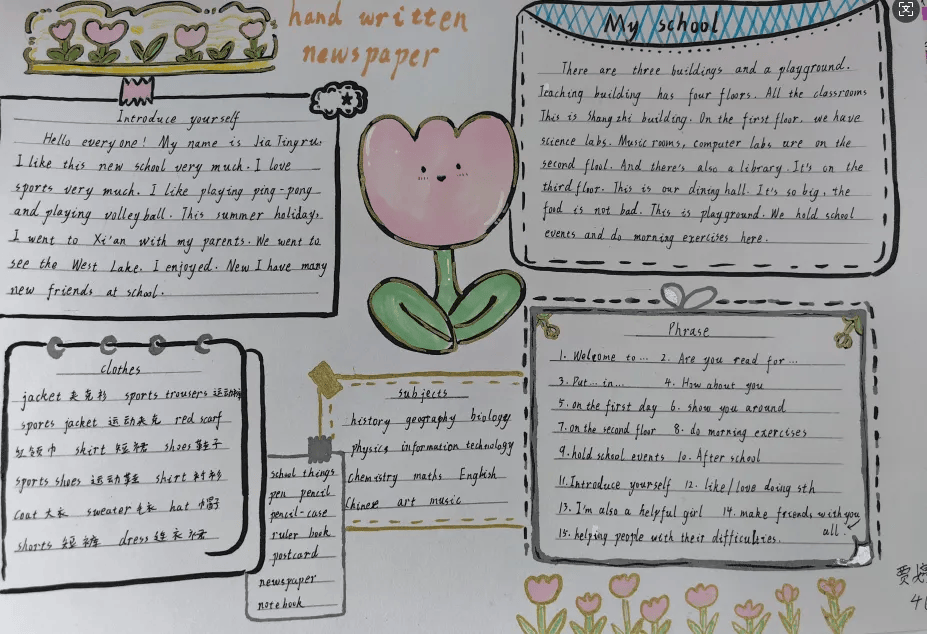 hand written
newspaper
Introduce yourself
Hello everyone! My name is Jia Tingru.
I like this new school very much. I love
sports very much. I like playing ping-pong
and playing volleyball. This summer holiday,
I went to Xi'an with my parents. We went to
see the West Lake. I enjoyed. New I have many
new friends at school.
My school
There are three buildings and a playground.
Teaching building has four floors. All the classrooms
This is Shang zhi building. On the first floor, we have
science labs. Music rooms, computer labs are on the
second flool. And there's also a library. It's on the
third floor. This is our dining hall. It's so big, the
food is not bad. This is playground. We hold school
events and do morning exercises here.
clothes
jacket 夹克衫 sports trousers 运动裤
sports jacket 运动夹克 red scarf
红领巾 skirt 短裙 shoes 鞋子
sports shoes 运动鞋 shirt 衬衫
coat 大衣 sweater 毛衣 hat 帽子
shorts 短裤 dress 连衣裙
school things
pen pencil
pencil-case
ruler book
postcard
newspaper
notebook
subjects
history geography biology
physics information technology
chemistry maths English
Chinese art music
Phrase
1. Welcome to... 2. Are you read for...
3. Put... in... 4. How about you
5. on the first day 6. show you around
7. on the second floor 8. do morning exercises
9. hold school events 10. After school
11. Introduce yourself 12. like/love doing sth
13. I'm also a helpful girl 14. make friends with you
all.
15. helping people with their difficulties.
贾